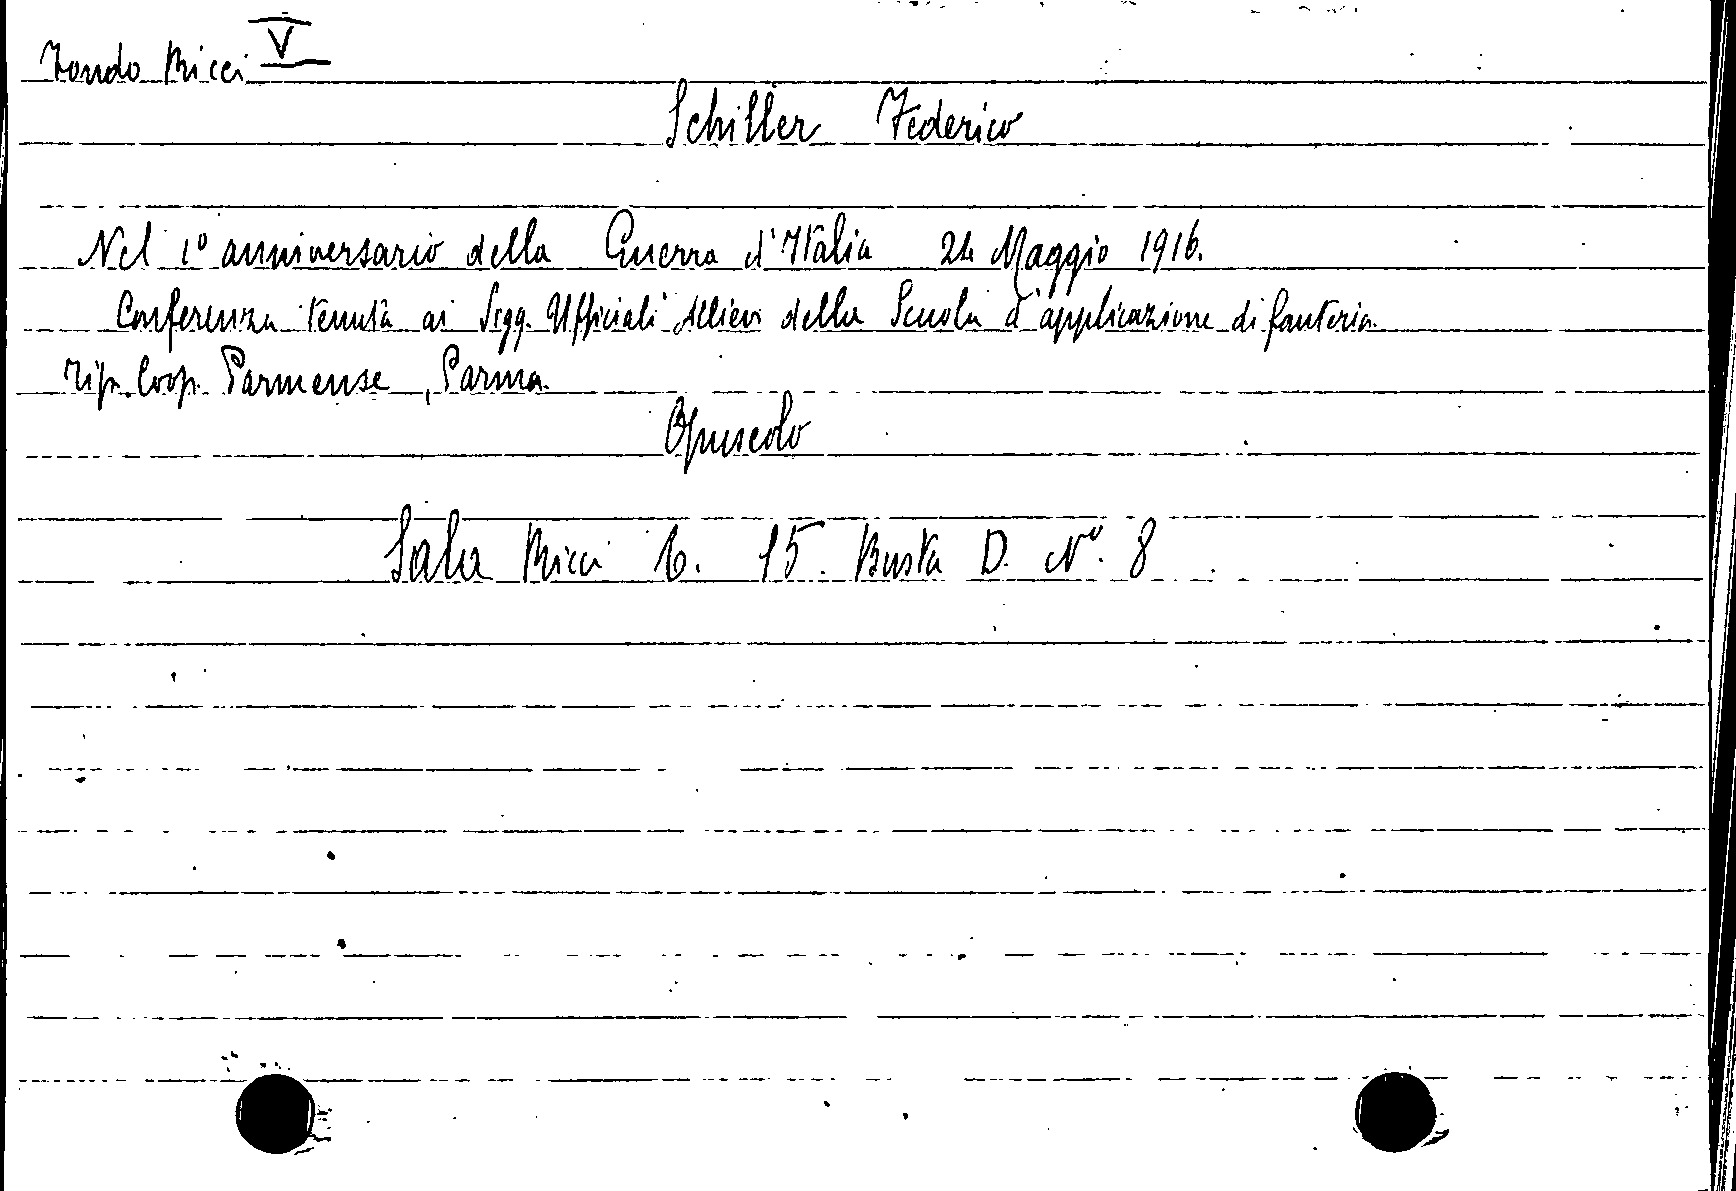 Fondo Ricci V
Schiller Federico
Nel 1º anniversario della Guerra d'Italia 24 Maggio 1916.
Conferenza tenuta ai Sigg. Ufficiali Allievi della Scuola d'applicazione di fanteria.
Tip. Coop. Parmense, Parma.
Opuscolo
Sala Ricci 6. 15. Busta D. Nº. 8